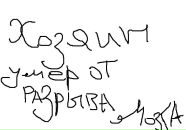 Хозяин
умер от
РАЗРЫВА
МОЗГА